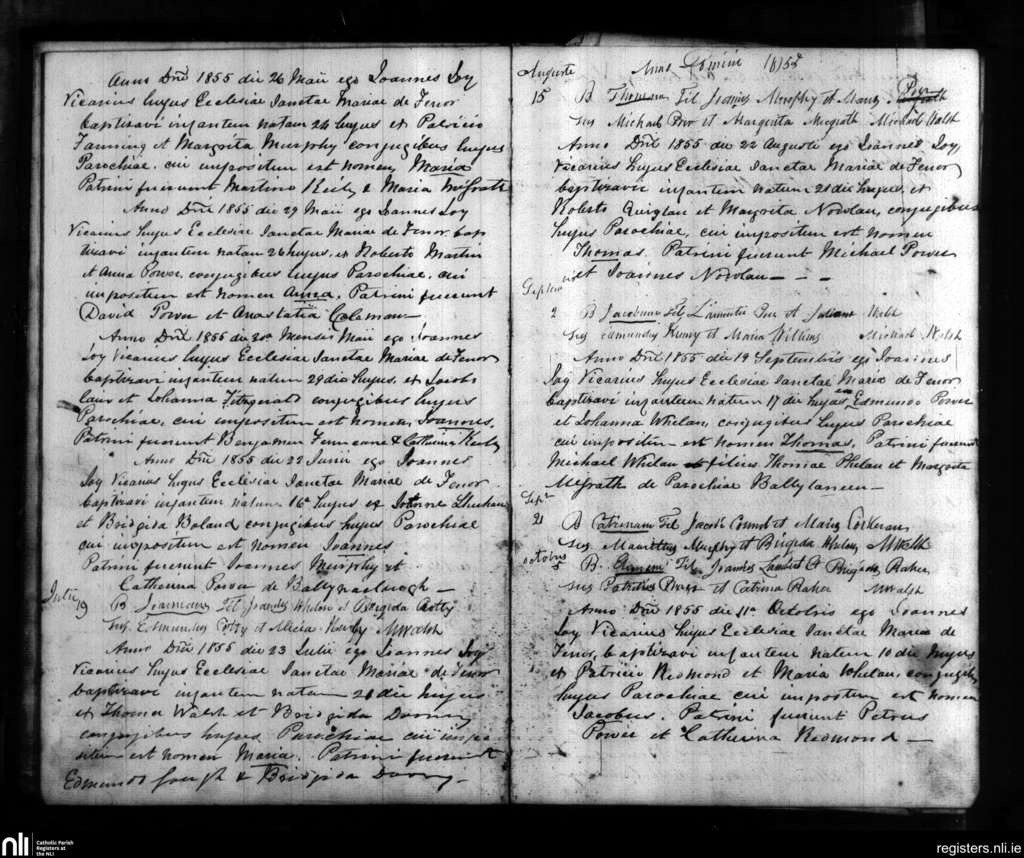 Anno Dni 1855 die 26 Maii ego Joannes Joy
Vicarius hujus Ecclesiae Sanctae Mariae de Fenor
baptizavi infantem natam 24 hujus et Patricio
Fanning et Margrita Murphy conjugibus hujus
Parochiae, cui impositum est nomen Maria
Patrini fuerunt Martino & Maria McGrath
Anno Dni 1855 die 29 Maii ego Joannes Joy
Vicarius hujus Ecclesiae Sanctae Mariae de Fenor bap
tizavi infantem natam 26 hujus, et Roberto Martin
et Anna Power, conjugibus hujus Parochiae, cui
impositum est nomen Anna. Patrini fuerunt
David Power et Anastatia Coleman
Anno Dni 1855 die Mensis Maii ego Joannes
Joy Vicarius hujus Ecclesiae Sanctae Mariae de Fenor
baptizavi infantem natum 29 die hujus, et Jacobo
et Johanna Fitzgerald conjugibus hujus
Parochiae, cui impositum est nomen Joannes.
Patrini fuerunt Benjamen & Catherina
Anno Dni 1855 die 22 Junii ego Joannes
Joy Vicarius hujus Ecclesiae Sanctae Mariae de Fenor
baptizavi infantem natum 16 hujus et
et Bridgida Boland conjugibus hujus Parochiae
cui impositum est nomen Joannes
Patrini fuerunt Joannes Murphy et
Catherina Power de
Julii
19 B Joannem Fil Joannis Whelan et Brigida
Sus Edmundus et Alicia M Walsh
Anno Dni 1855 die 23 Julii ego Joannes Joy
Vicarius hujus Ecclesiae Sanctae Mariae de Fenor
baptizavi infantem natam 20 die hujus
et Thoma Walsh et Bridgida
conjugibus hujus Parochiae cui impo
situm est nomen Maria. Patrini fuerunt
Edmundo Gough & Bridgida
Anno Domini 1855
Auguste
15 B Thomam Fil Joannis Murphy et
Sus Michael et Margerita Megrath Michael Walsh
Anno Dni 1855 die 22 Augusti ego Joannes Joy
Vicarius hujus Ecclesiae Sanctae Mariae de Fenor
baptizavi infantem natum 21 die hujus, et
Roberto Quiglan et Margrita Nowlan, conjugibus
hujus Parochiae, cui impositum est nomen
Thomas. Patrini fuerunt Michael Power
et Joannes Nowlan
2 B Jacobum Fil et
Sus Edmundus et Maria Michael Walsh
Anno Dni 1855 die 19 Septembris ego Joannes
Joy Vicarius hujus Ecclesiae Sanctae Mariae de Fenor
baptizavi infantem natum 17 die hujus, Edmundo Power
et Johanna Whelan, conjugibus hujus Parochiae
cui impositum est nomen Thomas. Patrini fuerunt
Michael Whelan filius Thomae Phelan et Margrita
McGrath de Parochiae
Sept
21 B Catrinam Fil Jacobi et
Sus Mauritius Murphy et Brigida Whelan M Walsh
Octobris
5 B Fil Joannis Lambert et Baker
Sus Patritius Power et Catrina Baker M Walsh
Anno Dni 1855 die 11 Octobris ego Joannes
Joy Vicarius hujus Ecclesiae Sanctae Mariae de
Fenor, baptizavi infantem natum 10 die hujus
et Patricio Redmond et Maria Whelan, conjugibus
hujus Parochiae cui impositum est nomen
Jacobus. Patrini fuerunt Petrus
Power et Catherina Redmond
nli Catholic Parish
Registers at
the NLI
registers.nli.ie